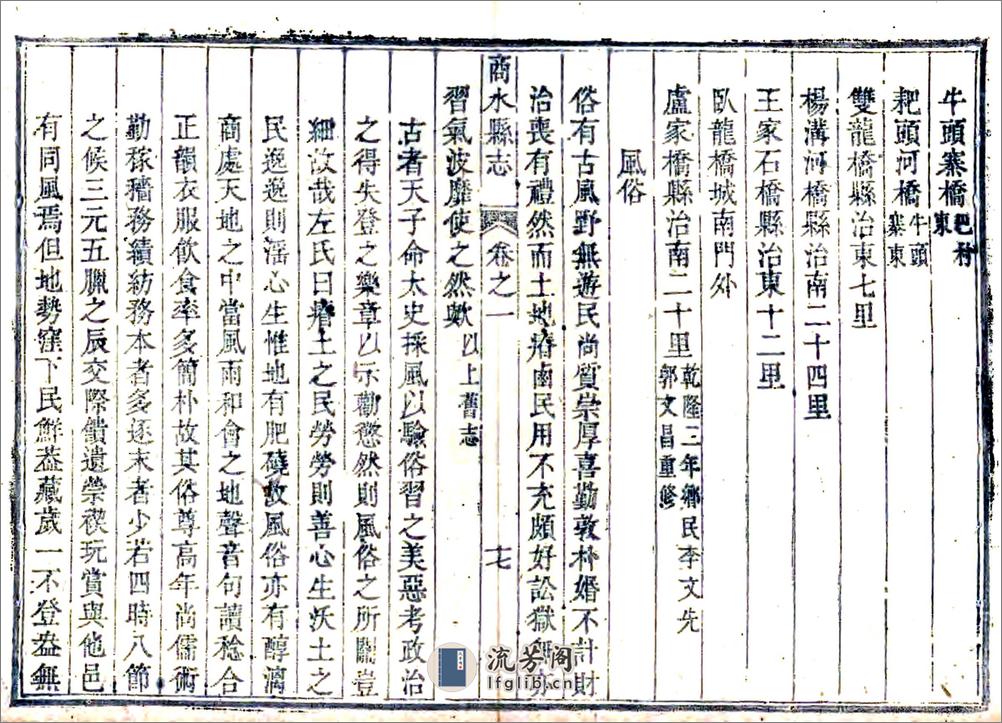 牛頭寨橋巴村東
耙頭河橋牛頭寨東
雙龍橋縣治東七里
楊溝河橋縣治南二十四里
王家石橋縣治東十二里
臥龍橋城南門外
盧家橋縣治南二十里乾隆二年鄉民李文先郭文昌重修
風俗
俗有古風野無遊民尚質崇厚喜勤敦朴婚不計財
治喪有禮然而土地瘠鹵民用不充頗好訟獄無亦
商水縣志 卷之一 十七
習氣波靡使之然歟以上舊志
古者天子命太史採風以驗俗習之美惡考政治
之得失登之樂章以示勸懲然則風俗之所關豈
細故哉左氏曰瘠土之民勞勞則善心生沃土之
民逸逸則淫心生惟地有肥磽故風俗亦有醇漓
商處天地之中當風雨和會之地聲音句讀稔合
正韻衣服飲食率多簡朴故其俗尊高年尚儒術
勤稼穡務績紡務本者多逐末者少若四時八節
之候三元五臘之辰交際饋遺禜禊玩賞與他邑
有同風焉但地勢窪下民鮮葢藏歲一不登葢無
流芳阁
lfglib.cn